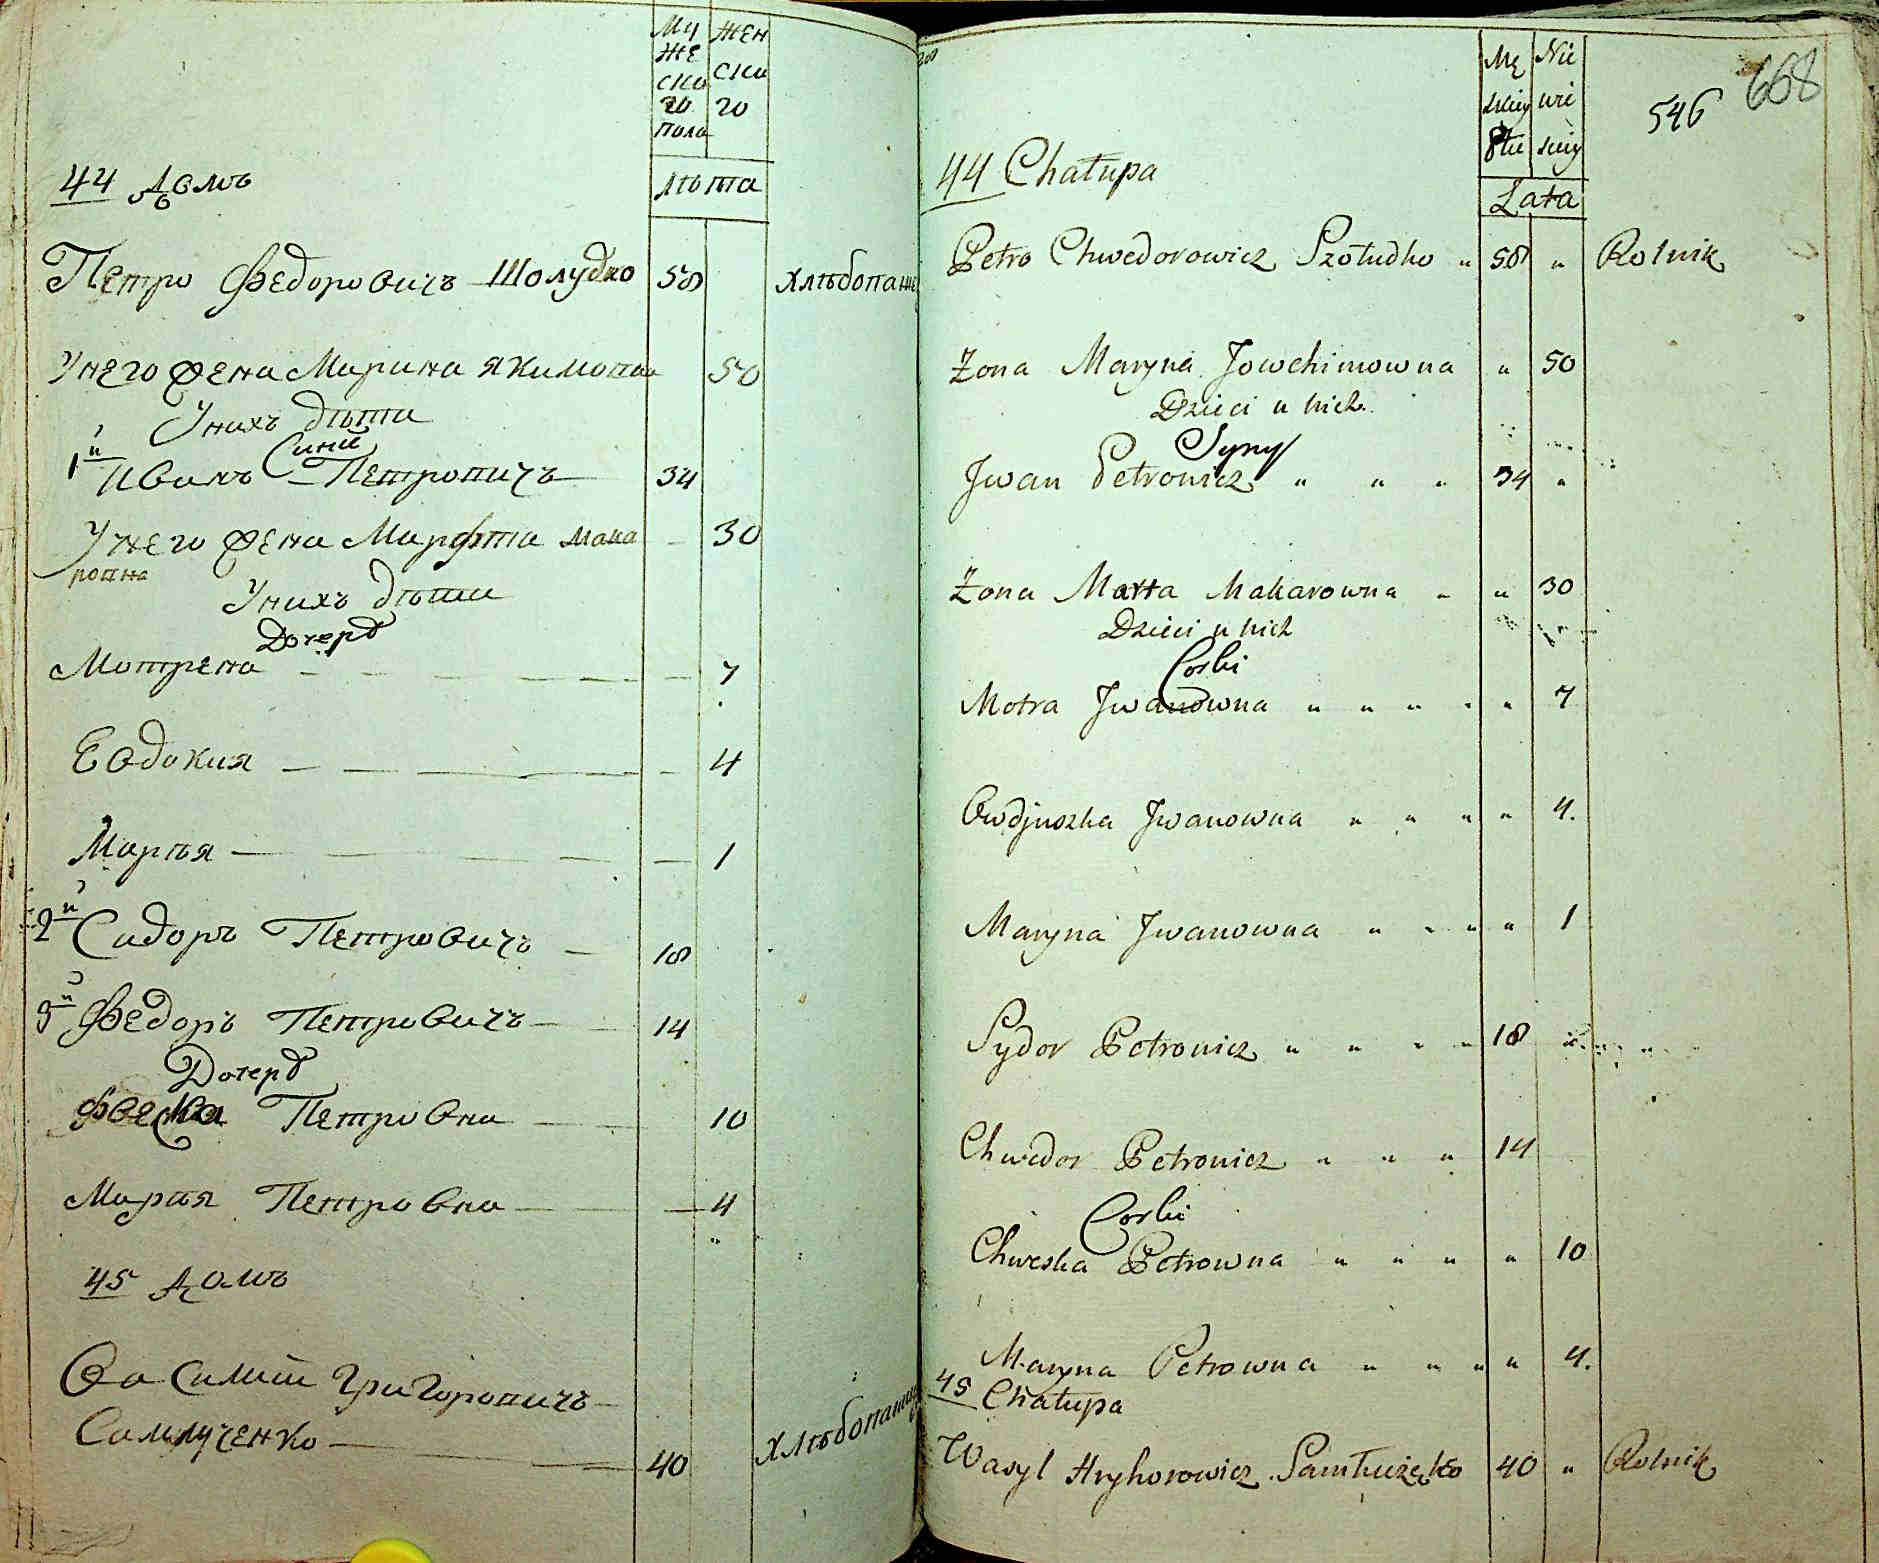 Му
же
ска
го
пола
Жен
ска
го
Лѣта
44 Домъ
Петро Федоровичъ Шолудко 58 Хлѣбопаше
Унего жена Марина Якимовна 50
Унихъ дѣти
Сини
1й Иванъ Петровичъ 34
Унего жена Марфта Мака 30
ровна
Унихъ дѣти
Дочерѣ
Мотрена 7
Евдокия 4
Маръя 1
2й Сидоръ Петровичъ 18
3й Федоръ Петровичъ 14
Дочерѣ
Феска Петровна 10
Маръя Петровна 4
45 Домъ
Василий Григоровичъ
Самлученко 40 Хлѣбопашец
Mę
skiey
Płci
Nie
wie
sciey
Lata
546 668
44 Chałupa
Petro Chwedorowicz Szołudko " 58 " Rolnik
Żona Maryna Jowchimowna " 50
Dzieci u nich
Syny
Jwan Petrowicz " " " 34 "
Żona Marta Makarowna " " 30
Dzieci u nich
Corki
Motra Jwanowna " " " " " 7
Owdjuszka Jwanowna " " " " 4.
Maryna Jwanowna " " " " 1
Sydor Petrowicz " " " " 18
Chwedor Petrowicz " " " 14
Corki
Chweska Petrowna " " " " 10
Maryna Petrowna " " " " 4.
45 Chałupa
Wasyl Hryhorowicz Samłuczęko 40 " Rolnik